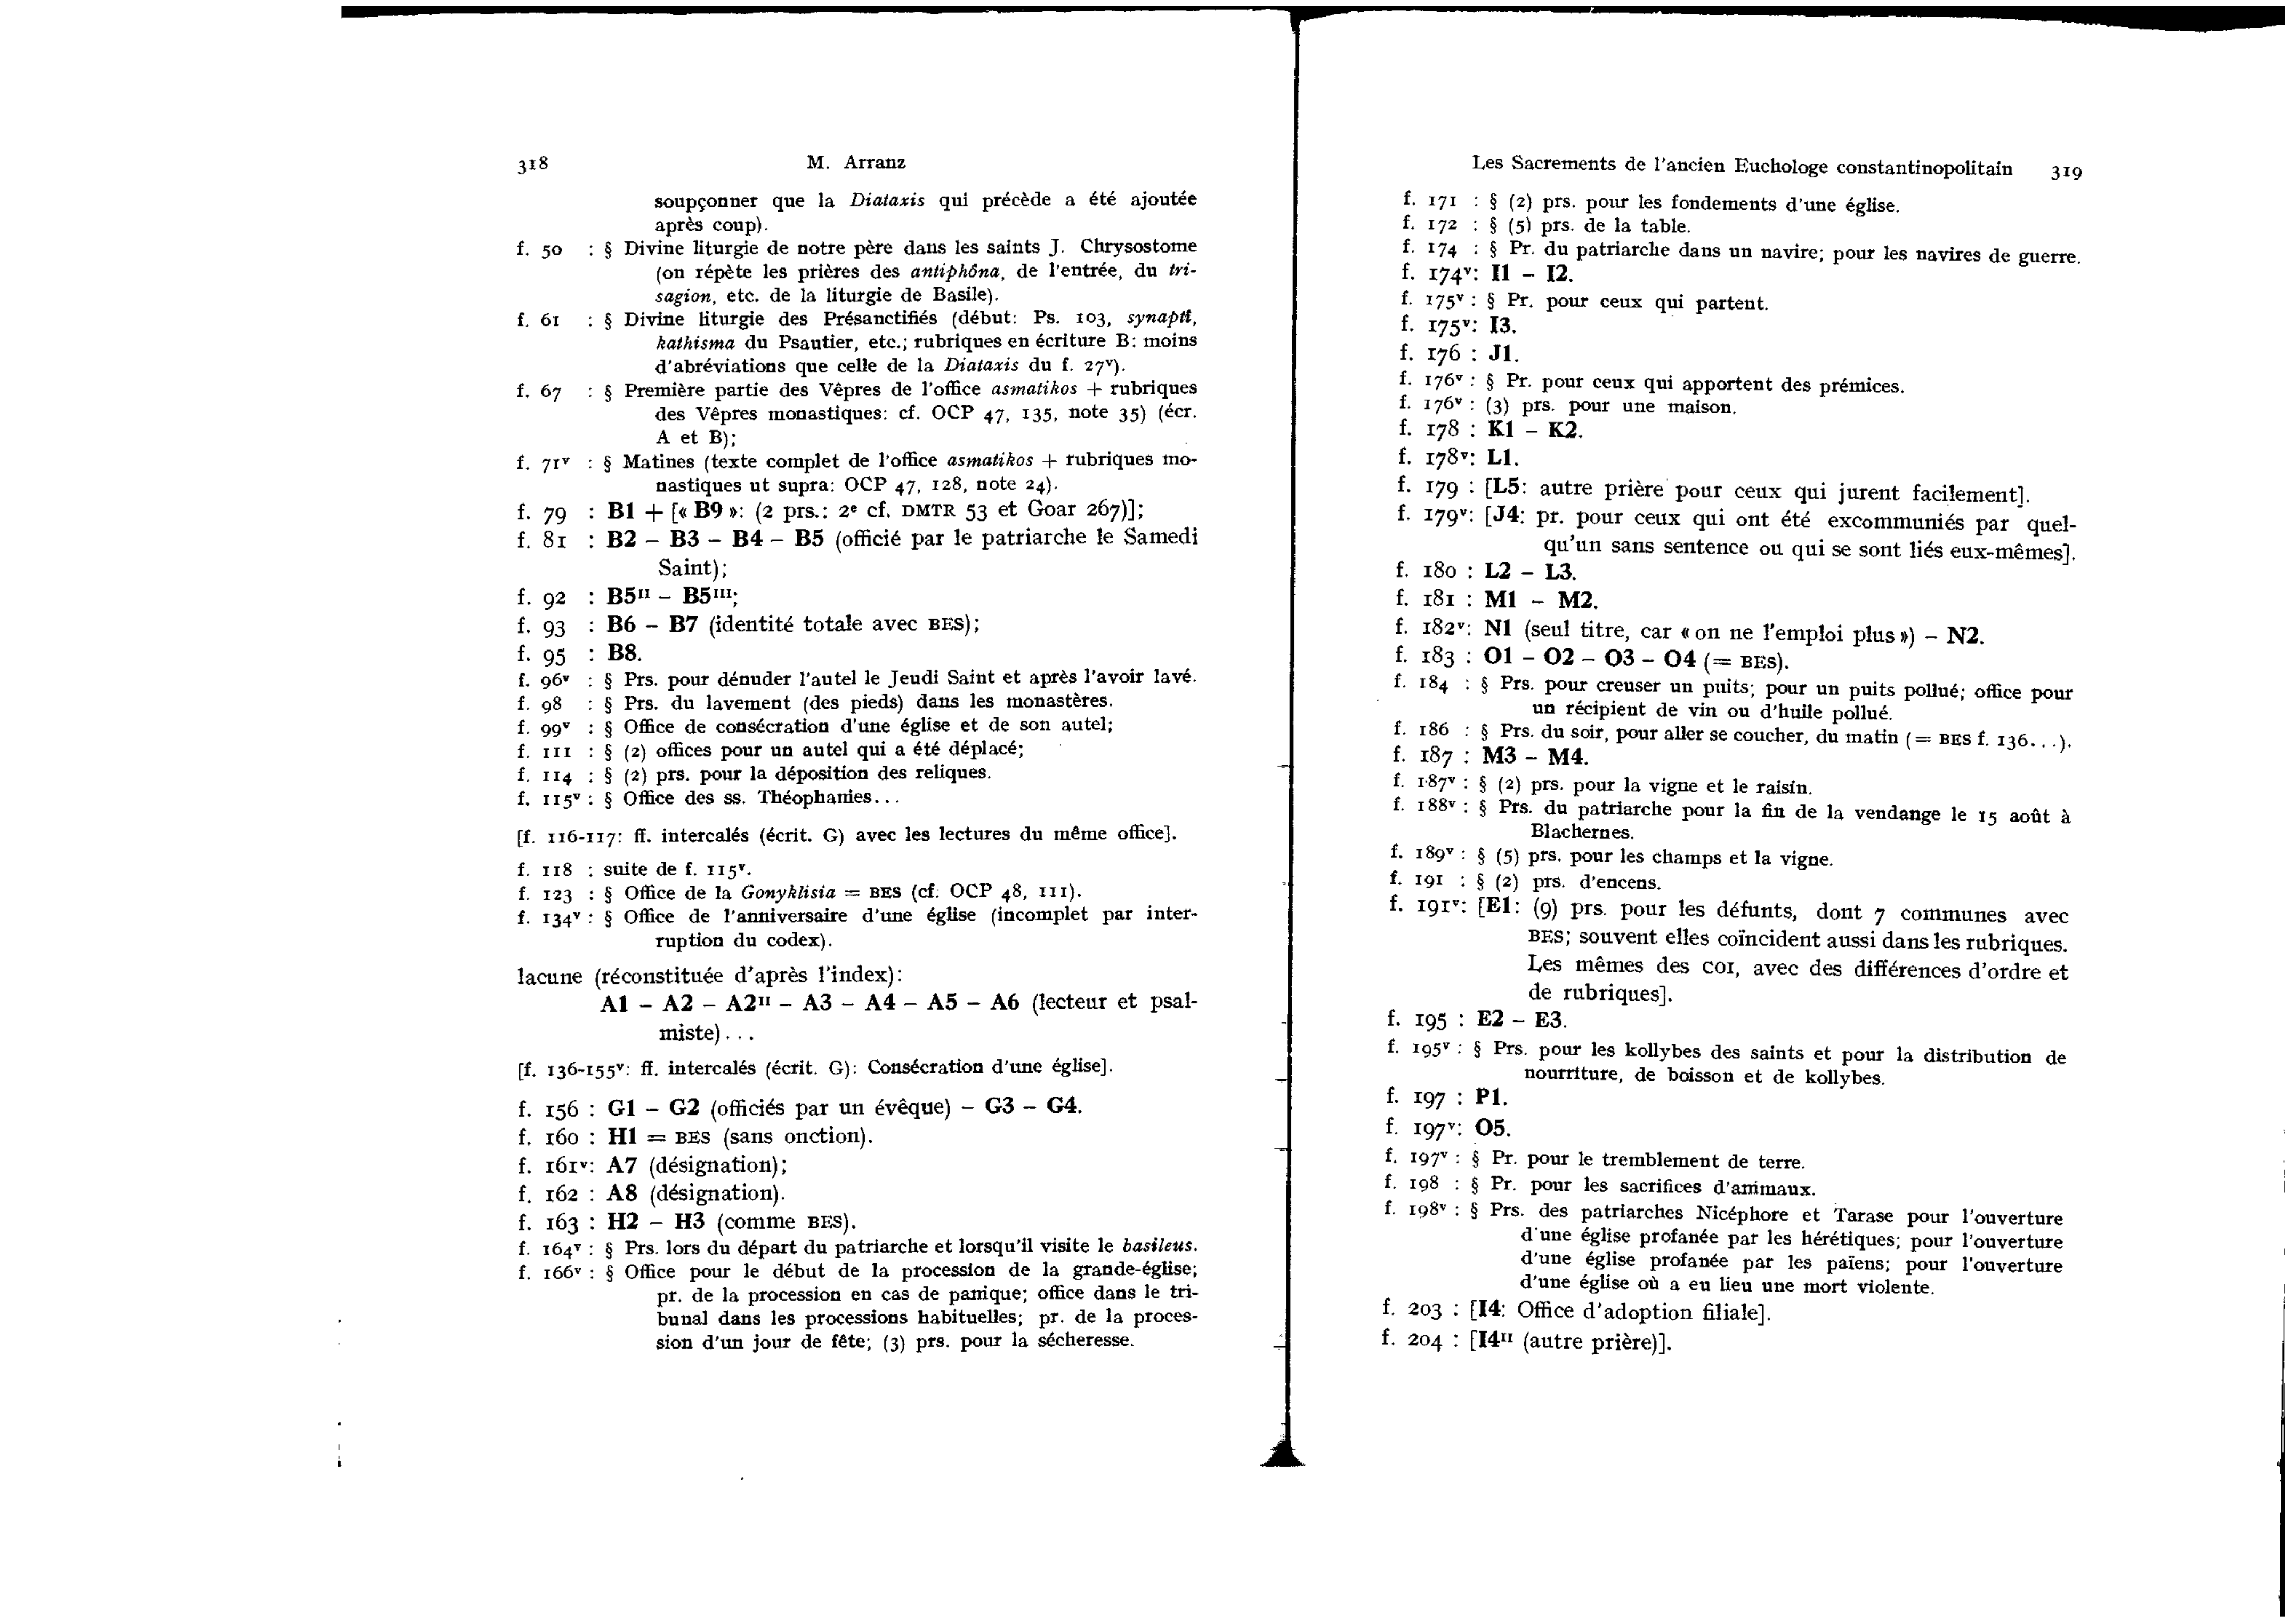 318 M. Arranz
soupçonner que la Diataxis qui précède a été ajoutée
après coup).
f. 50 : § Divine liturgie de notre père dans les saints J. Chrysostome
(on répète les prières des antiphôna, de l'entrée, du tri-
sagion, etc. de la liturgie de Basile).
f. 61 : § Divine liturgie des Présanctifiés (début: Ps. 103, synaptí,
kathisma du Psautier, etc.; rubriques en écriture B: moins
d'abréviations que celle de la Diataxis du f. 27ᵛ).
f. 67 : § Première partie des Vêpres de l'office asmatikos + rubriques
des Vêpres monastiques: cf. OCP 47, 135, note 35) (écr.
A et B);
f. 71ᵛ : § Matines (texte complet de l'office asmatikos + rubriques mo-
nastiques ut supra: OCP 47, 128, note 24).
f. 79 : B1 + [« B9 »: (2 prs.: 2ᵉ cf. DMTR 53 et Goar 267)];
f. 81 : B2 – B3 – B4 – B5 (officié par le patriarche le Samedi
Saint);
f. 92 : B5ᴵᴵ – B5ᴵᴵᴵ;
f. 93 : B6 – B7 (identité totale avec BES);
f. 95 : B8.
f. 96ᵛ : § Prs. pour dénuder l'autel le Jeudi Saint et après l'avoir lavé.
f. 98 : § Prs. du lavement (des pieds) dans les monastères.
f. 99ᵛ : § Office de consécration d'une église et de son autel;
f. 111 : § (2) offices pour un autel qui a été déplacé;
f. 114 : § (2) prs. pour la déposition des reliques.
f. 115ᵛ : § Office des ss. Théophanies...
[f. 116-117: ff. intercalés (écrit. G) avec les lectures du même office].
f. 118 : suite de f. 115ᵛ.
f. 123 : § Office de la Gonyklisia = BES (cf. OCP 48, 111).
f. 134ᵛ : § Office de l'anniversaire d'une église (incomplet par inter-
ruption du codex).
lacune (réconstituée d'après l'index):
A1 – A2 – A2ᴵᴵ – A3 – A4 – A5 – A6 (lecteur et psal-
miste)...
[f. 136-155ᵛ: ff. intercalés (écrit. G): Consécration d'une église].
f. 156 : G1 – G2 (officiés par un évêque) – G3 – G4.
f. 160 : H1 = BES (sans onction).
f. 161ᵛ: A7 (désignation);
f. 162 : A8 (désignation).
f. 163 : H2 – H3 (comme BES).
f. 164ᵛ : § Prs. lors du départ du patriarche et lorsqu'il visite le basileus.
f. 166ᵛ : § Office pour le début de la procession de la grande-église;
pr. de la procession en cas de panique; office dans le tri-
bunal dans les processions habituelles; pr. de la proces-
sion d'un jour de fête; (3) prs. pour la sécheresse.
Les Sacrements de l'ancien Euchologe constantinopolitain 319
f. 171 : § (2) prs. pour les fondements d'une église.
f. 172 : § (5) prs. de la table.
f. 174 : § Pr. du patriarche dans un navire; pour les navires de guerre.
f. 174ᵛ: I1 – I2.
f. 175ᵛ : § Pr. pour ceux qui partent.
f. 175ᵛ: I3.
f. 176 : J1.
f. 176ᵛ : § Pr. pour ceux qui apportent des prémices.
f. 176ᵛ : (3) prs. pour une maison.
f. 178 : K1 – K2.
f. 178ᵛ: L1.
f. 179 : [L5: autre prière pour ceux qui jurent facilement].
f. 179ᵛ: [J4: pr. pour ceux qui ont été excommuniés par quel-
qu'un sans sentence ou qui se sont liés eux-mêmes].
f. 180 : L2 – L3.
f. 181 : M1 – M2.
f. 182ᵛ: N1 (seul titre, car « on ne l'emploi plus ») – N2.
f. 183 : O1 – O2 – O3 – O4 (= BES).
f. 184 : § Prs. pour creuser un puits; pour un puits pollué; office pour
un récipient de vin ou d'huile pollué.
f. 186 : § Prs. du soir, pour aller se coucher, du matin (= BES f. 136...).
f. 187 : M3 – M4.
f. 187ᵛ : § (2) prs. pour la vigne et le raisin.
f. 188ᵛ : § Prs. du patriarche pour la fin de la vendange le 15 août à
Blachernes.
f. 189ᵛ : § (5) prs. pour les champs et la vigne.
f. 191 : § (2) prs. d'encens.
f. 191ᵛ: [E1: (9) prs. pour les défunts, dont 7 communes avec
BES; souvent elles coïncident aussi dans les rubriques.
Les mêmes des COI, avec des différences d'ordre et
de rubriques].
f. 195 : E2 – E3.
f. 195ᵛ : § Prs. pour les kollybes des saints et pour la distribution de
nourriture, de boisson et de kollybes.
f. 197 : P1.
f. 197ᵛ: O5.
f. 197ᵛ : § Pr. pour le tremblement de terre.
f. 198 : § Pr. pour les sacrifices d'animaux.
f. 198ᵛ : § Prs. des patriarches Nicéphore et Tarase pour l'ouverture
d'une église profanée par les hérétiques; pour l'ouverture
d'une église profanée par les païens; pour l'ouverture
d'une église où a eu lieu une mort violente.
f. 203 : [I4: Office d'adoption filiale].
f. 204 : [I4ᴵᴵ (autre prière)].